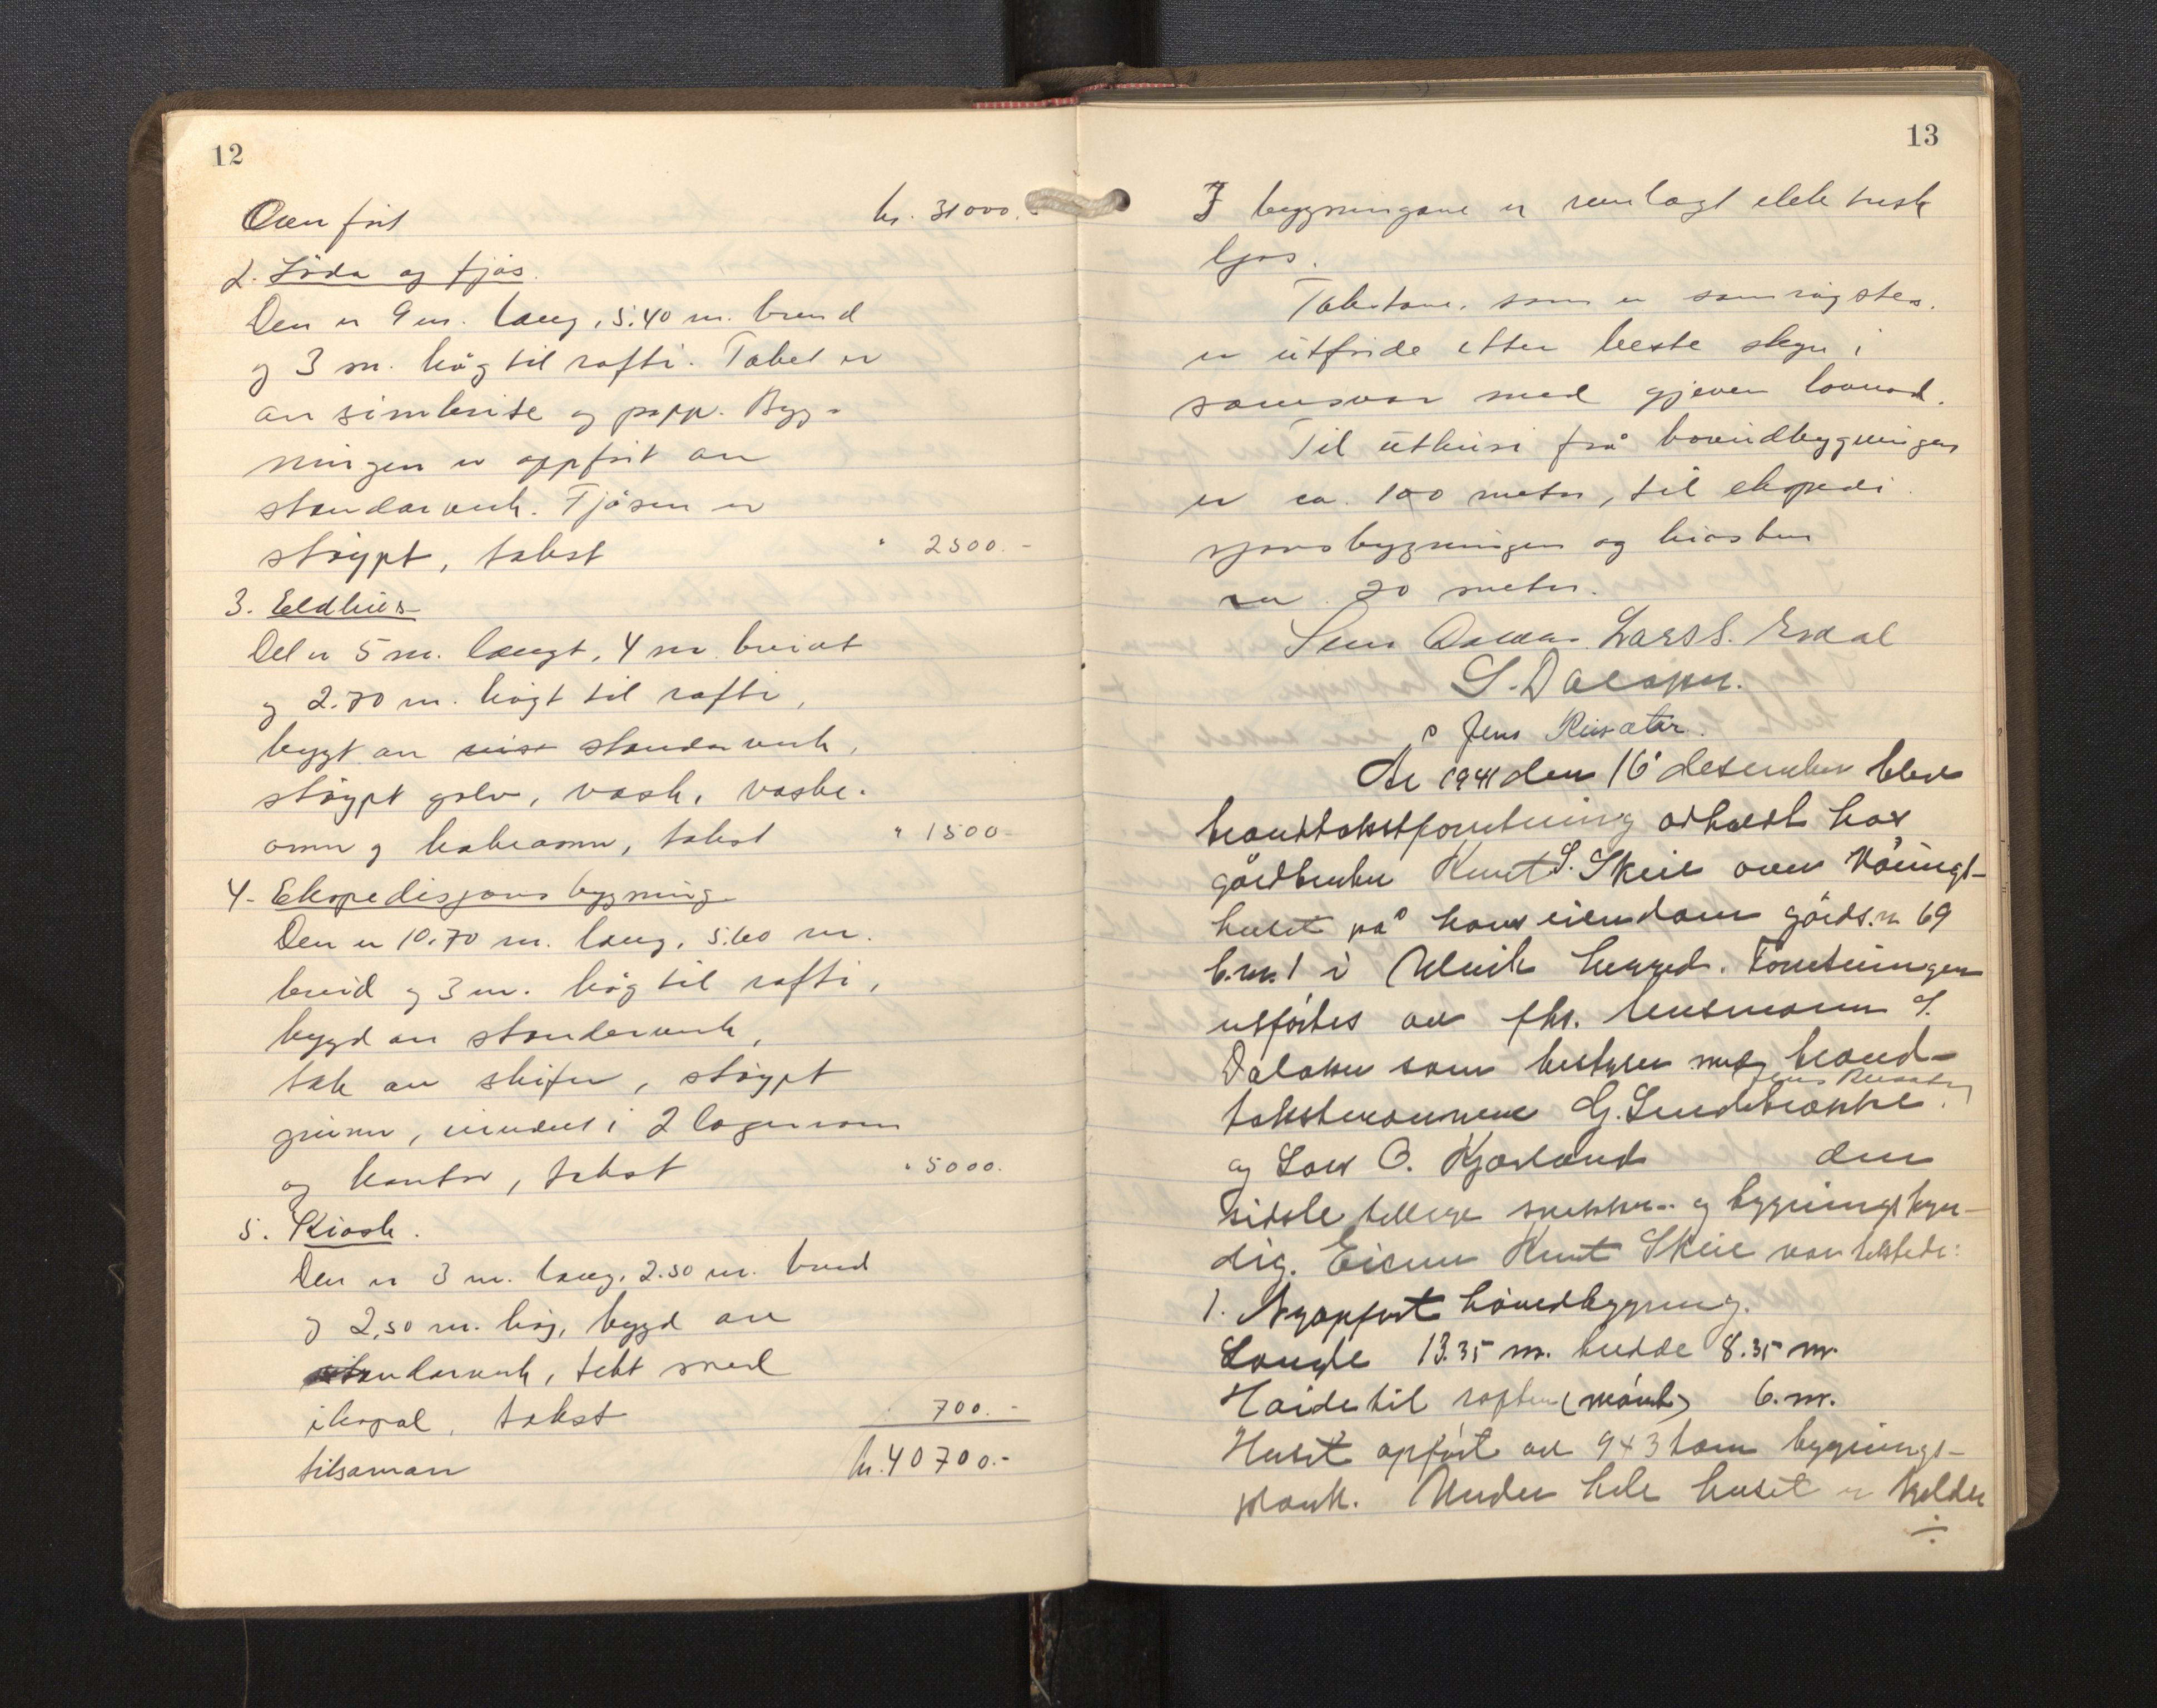 12
Overført kr. 31000.-
2. Löda og fjös.
Den er 9 m. lang, 5.40 m. breid
og 3 m. høg til rafti. Taket er
av simbrite og papp. Byg-
ningen er oppført av
standarverk. Fjösen er
støypt, takst " 2500.-
3. Eldhus
Det er 5 m. langt, 4 m. breiat
og 2.70 m. högt til rafti,
bygt av standarverk,
støypt golv, vask, vaske-
omn og bakeromn, takst " 1500
4. Ekspedisjons bygning
Den er 10.70 m. lang, 5.60 m.
breid og 3 m. høg til rafti,
bygd av standerverk,
tak av skifer, støypt
grunn, inndelt i 2 lagerrom
og kontor, takst " 5000.
5. Kiosk.
Den er 3 m. lang, 2.50 m. breid
og 2,50 m. høg, bygd av
standarverk, tekt med
ikopal, takst 700.-
tilsaman kr. 40700.-
13
I bygningane er innlagt elektrisk
ljos.
Takstane, som er samrøystes.
er utførde etter beste skyn i
samsvar med gjeven lovnad.
Til uthusi frå hovudbygningen
er ca. 100 meter, til ekspedi
sjonsbygningen og kiosken
ca. 20 meter.
Lars S. Esdal
S. Dalaker.
Jens
År 1941 den 16 desember blev
brandtakstforretning avholdt hos
gårdbruker Knut S. Skeie over Vånings-
huset på hans eiendom gårds.nr 69
b.nr. 1 i Ulvik herred. Forretningen
utførtes av fhv. lensmann S.
Dalaker som bestyrer med brand-
Jens
takstmannene G. Lindebrekke.
og Lars O. Kjærland den
sidste tillige snekker- og bygningskyn-
dig. Eieren Knut Skeie var tilstede:
1. Nyopført hövedbygning.
Længde 13.35 m. bredde 8.35 m.
Høide til raften (mönet) 6. m.
Huset opført av 9 x 3 tom bygnings-
plank. Under hele huset er kjelder
÷